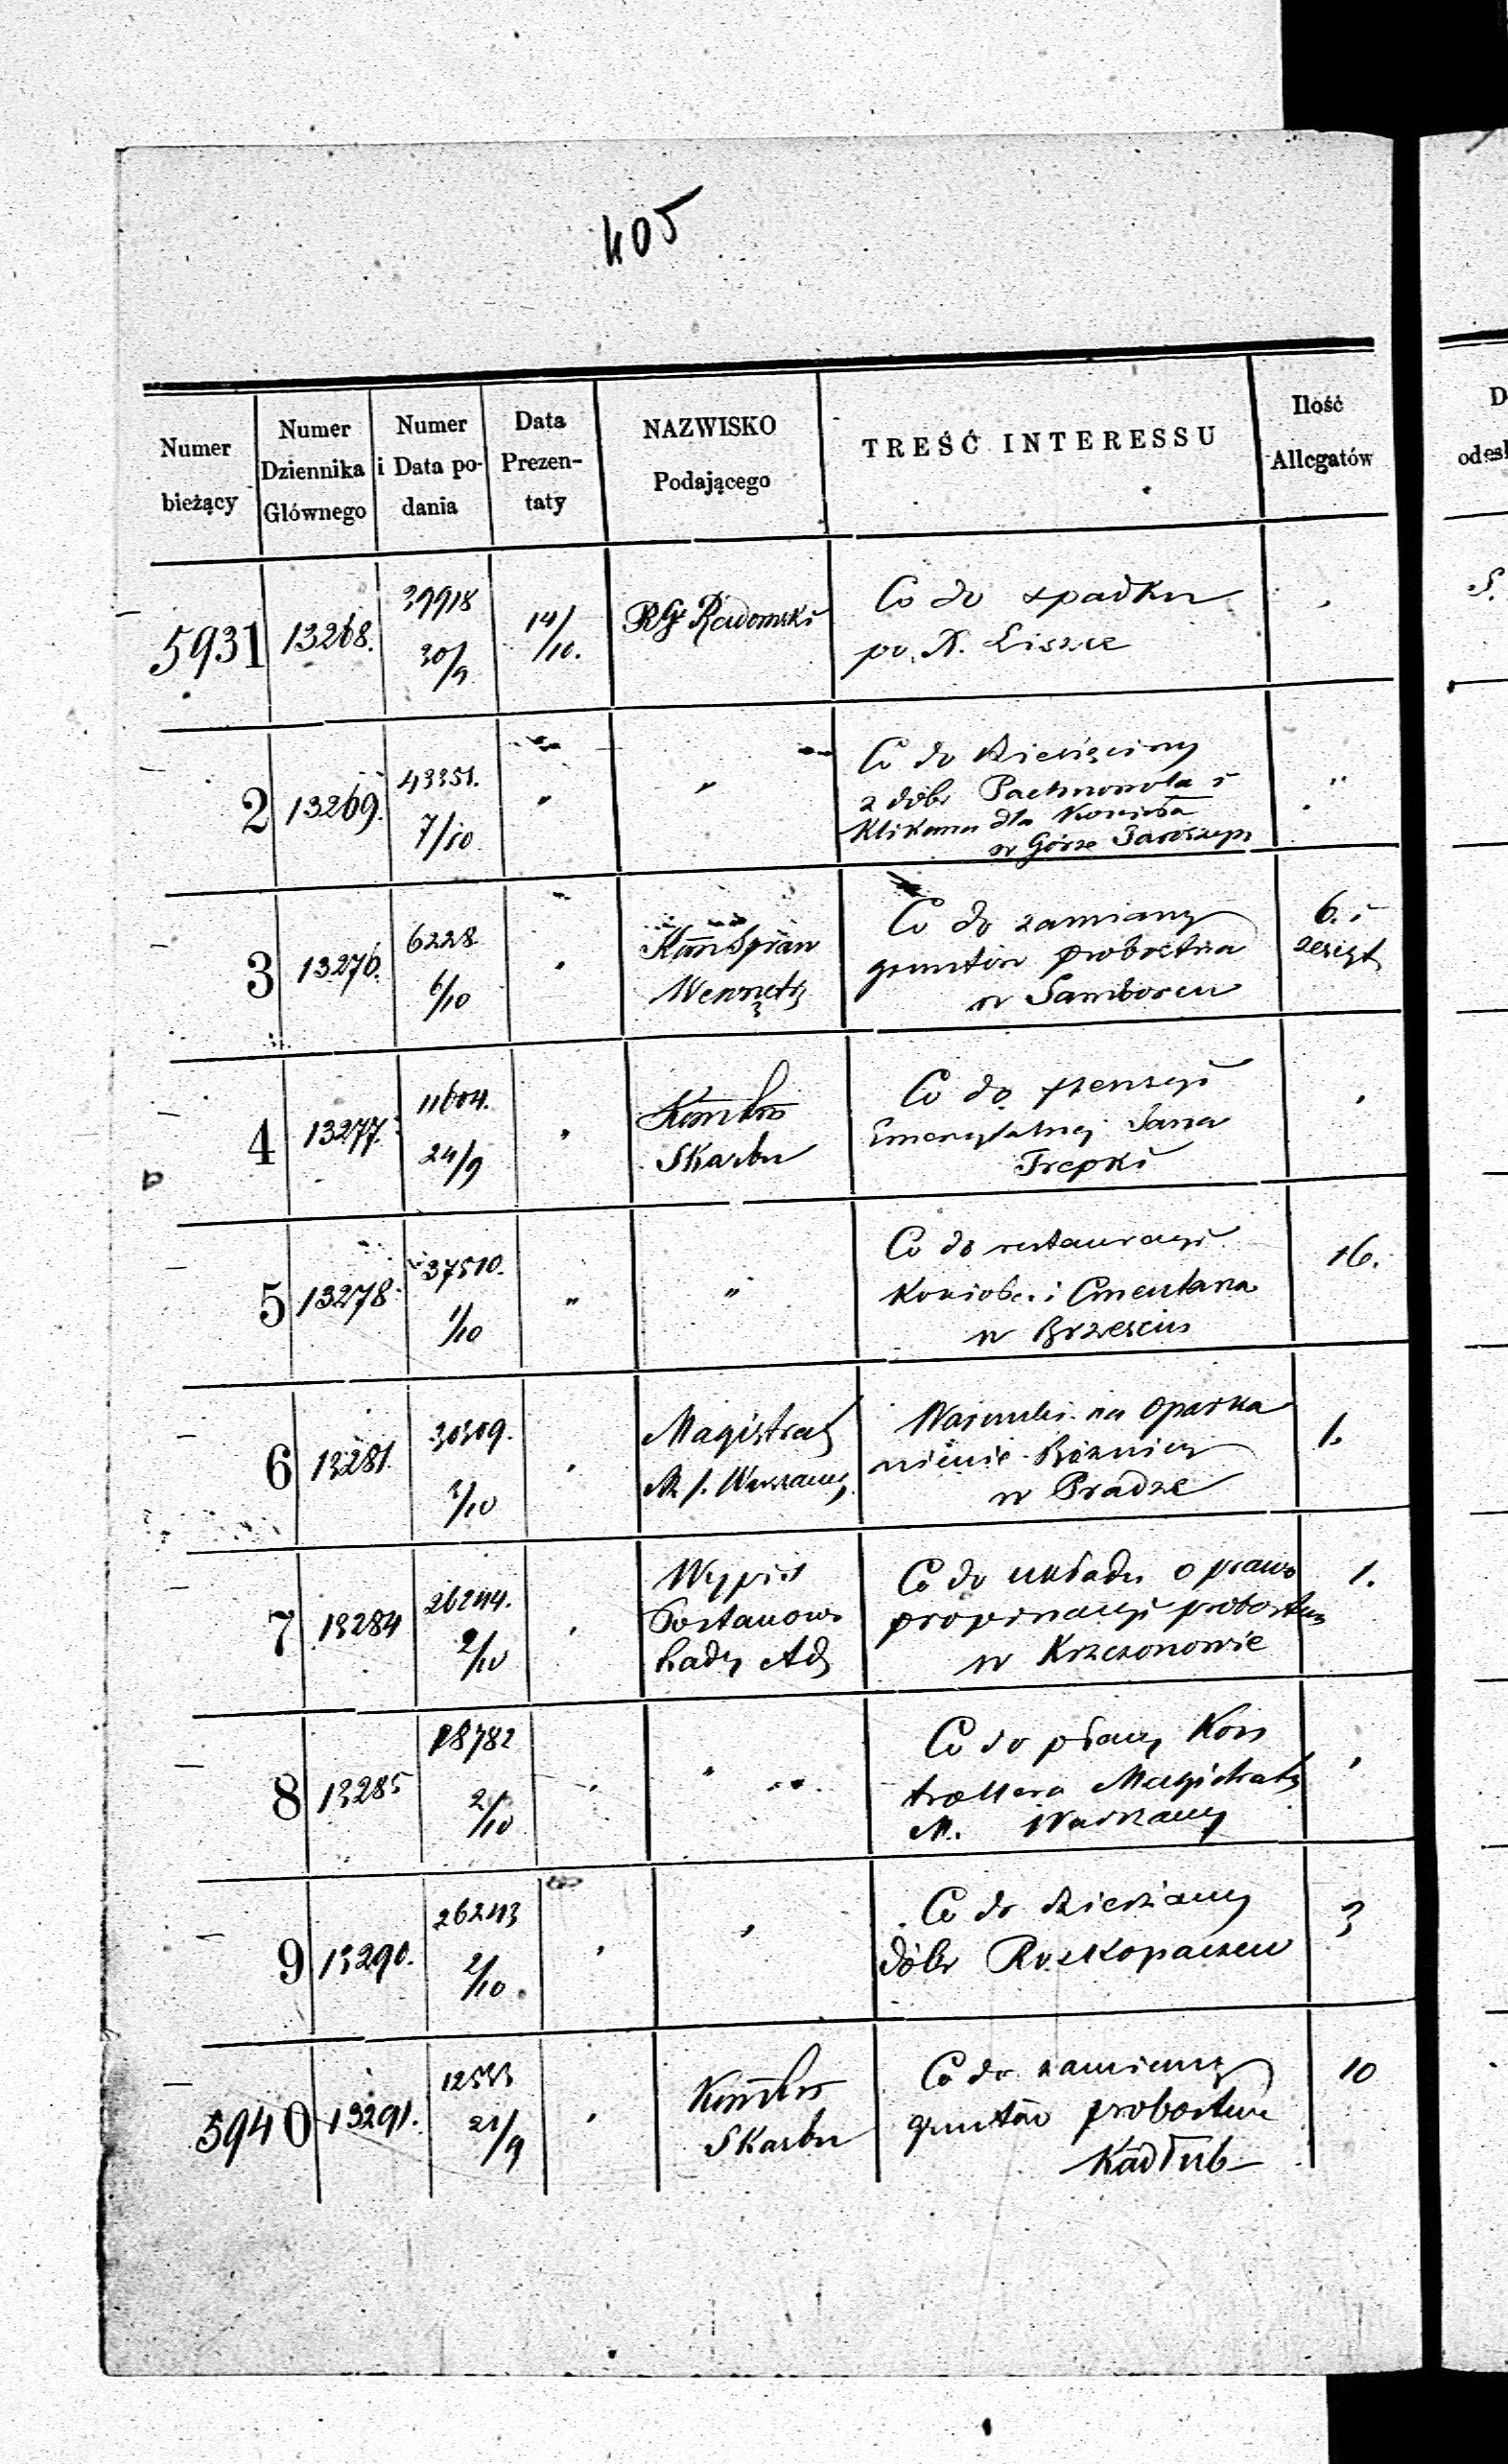 405
Numer bieżący
Numer Dziennika Głównego
Numer i Data podania
Data Prezentaty
NAZWISKO Podającego
TREŚĆ INTERESSU
Ilość Allegatów
5931 13268. 39918 30/9 14/10. RGś Radomski Co do spadku
po X. Liszce
2 13269. 43351. 7/10 " " Co do dziesięciny
z dóbr Pachnowola i
Klikawa dla Kościoła
w Górze
3 13276. 6228. 6/10 " Kom Spraw Wewnętrz Co do zamiany 6. i zeszyt
gruntów probostwa
w Samborcu
4 13277. 11604. 24/9 " Skarbu Co do pensyi
Emerytalnej Jana
Trepki
5 13278. 37510. 1/10 " " Co do restauracyi 16.
Kościoła i Cmentarza
w Brzesciu
6 13281. 30309. 2/10 " Magistrat M. s. Warszawy Warunki na oparka 1.
nienie Bóżnicy
w Pradze
7 13284 26244. 2/10 " Wypis Postanow. Rady Ad Co do układu o prawo 1.
propinacyi probostwa
w Krzczonowie
8 13285 18782 2/10 " " Co do płacy Kon
trollera Magistratu
M. Warszawy
9 13290. 26243 2/10 " " Co do dzierżawy 3
dóbr Roskopaczew
5940 13291. 21/9 " Skarbu Co do zamiany 10
gruntów probostwa
Kadłub
D
odesł
S.